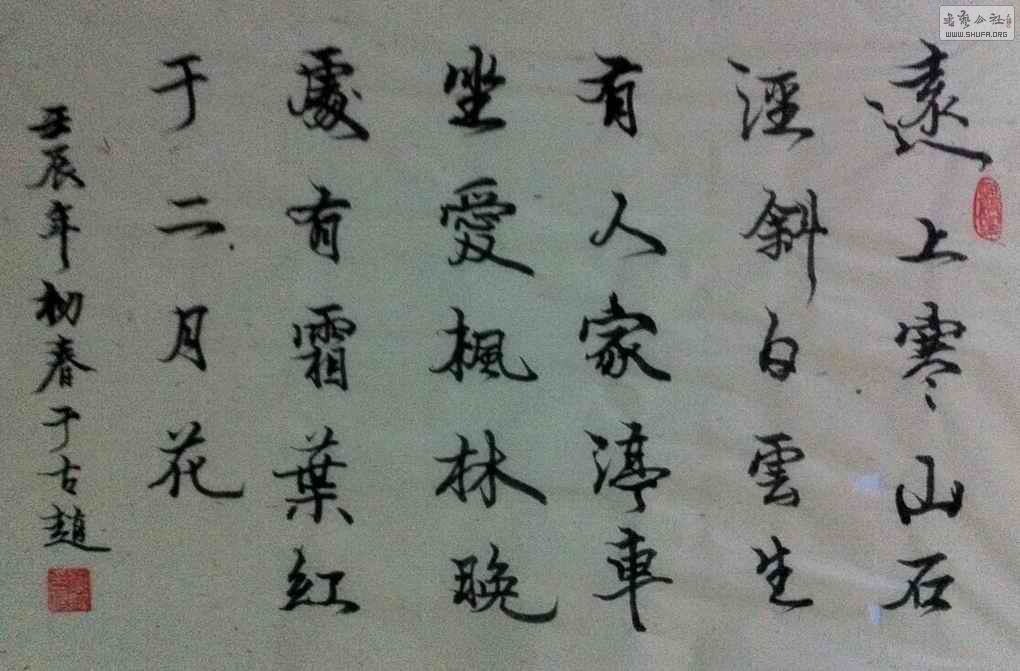 遠上寒山石
涇斜白雲生
有人家渟車
坐愛楓林晚
處有霜葉紅
于二月花
壬辰年初春于古趙
书藝公社
WWW.SHUFA.ORG